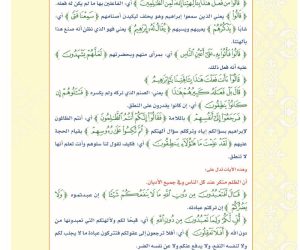 ﴿ قَالُوا مَن فَعَلَ هَٰذَا بِآلِهَتِنَا إِنَّهُ لَمِنَ الظَّالِمِينَ ﴾ أي، الفاعلين بها ما لم يكن له فعله.
﴿ قَالُوا ﴾ يعني الذين سمعوا إبراهيم وهو يحلف ليكيدن أصنامهم ﴿ سَمِعْنَا فَتًى ﴾ أي،
شابا ﴿ يَذْكُرُهُمْ ﴾ يعيبهم ويسبهم ﴿ يُقَالُ لَهُ إِبْرَاهِيمُ ﴾ يعني فهو الذي نظن أنه صنع هذا
بآلهتنا.
﴿ قَالُوا فَأْتُوا بِهِ عَلَىٰ أَعْيُنِ النَّاسِ ﴾ أي، بمرأى منهم وبحضرتهم ﴿ لَعَلَّهُمْ يَشْهَدُونَ ﴾
عليه أنه فعل ذلك.
﴿ قَالُوا أَأَنتَ فَعَلْتَ هَٰذَا بِآلِهَتِنَا يَا إِبْرَاهِيمُ ﴾
﴿ قَالَ بَلْ فَعَلَهُ كَبِيرُهُمْ هَٰذَا ﴾ يعني، الصنم الذي تركه ولم يكسره ﴿ فَاسْأَلُوهُمْ إِن
كَانُوا يَنطِقُونَ ﴾ أي، إن كانوا يقدرون على النطق.
﴿ فَرَجَعُوا إِلَىٰ أَنفُسِهِمْ ﴾ باللامة ﴿ فَقَالُوا إِنَّكُمْ أَنتُمُ الظَّالِمُونَ ﴾ أي، أنتم الظالمون
لإبراهيم بسؤالكم إياه وتركتم سؤال آلهتكم ﴿ ثُمَّ نُكِسُوا عَلَىٰ رُءُوسِهِمْ ﴾ بقيام الحجة
عليهم ﴿ لَقَدْ عَلِمْتَ مَا هَٰؤُلَاءِ يَنطِقُونَ ﴾ أي، فكيف تقول لنا سلوهم وأنت تعلم أنها
لا تنطق.
وهذه الآيات تدل على:
أن الظلم منكر عند كل الناس وفي جميع الأديان.
﴿ قَالَ أَفَتَعْبُدُونَ مِن دُونِ اللَّهِ مَا لَا يَنفَعُكُمْ شَيْئًا ﴾ إن عبدتموه ﴿ وَلَا
يَضُرُّكُمْ ﴾ إن تركتم عبادته.
﴿ أُفٍّ لَّكُمْ وَلِمَا تَعْبُدُونَ مِن دُونِ اللَّهِ ﴾ أي، قبحا لكم ولآلهتكم التي تعبدونها من
دون الله ﴿ أَفَلَا تَعْقِلُونَ ﴾ أي، أفلا ترجعون إلى عقولكم فتتركون عبادة ما لا يجلب لكم
ولا لنفسه النفع ولا يدفع عنكم ولا عن نفسه الضر.